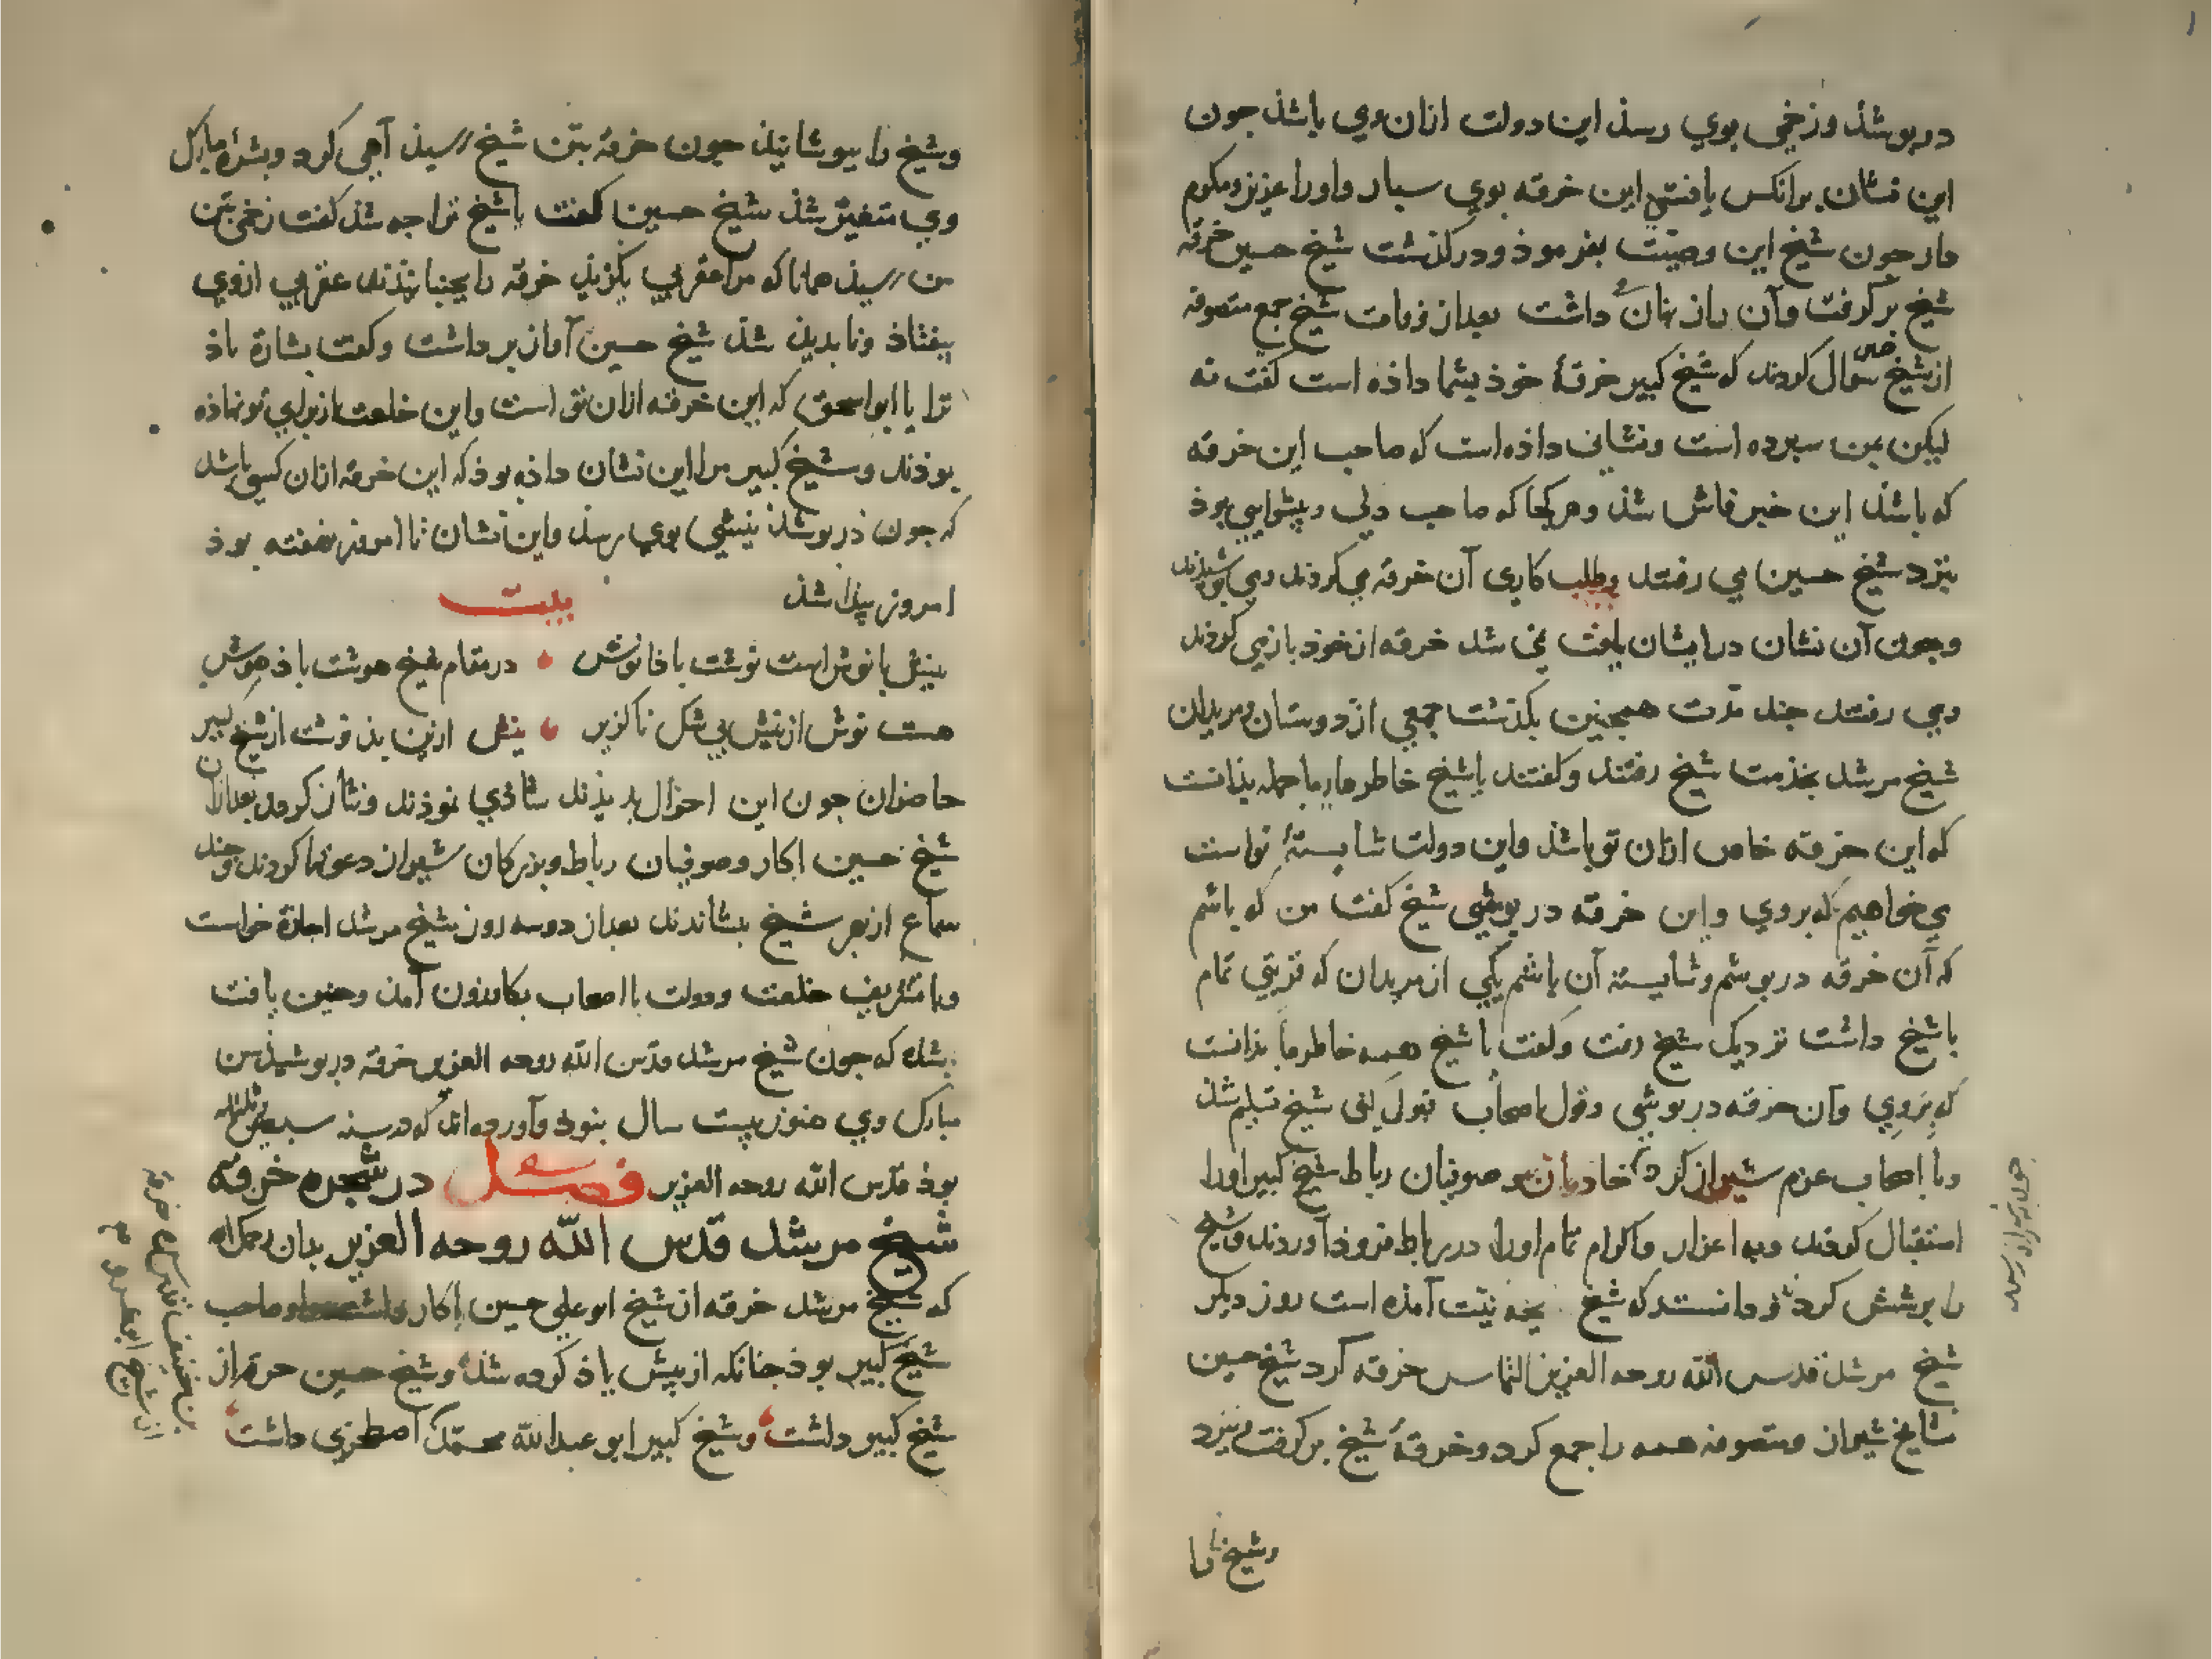 درپوشذ و زخمی بوی رسذ این دولت ازان وی باشذ جون
این نشان برانکس یافتی این خرقه بوی سبار واورا عزیز ومکرم
دار جون شیخ این وصیّت بفرموذ ودر کذشت شیخ حسین خرقه
شیخ بر کرفت وآن راز نهان داشت بعد از وفات شیخ جمع متصوفه
از شیخ حسین سوال کردند که شیخ کبیر خرقهٔ خوذ بشما داذه است کفت نه
لیکن بمن سبرده است ونشانی داذه است که صاحب این خرقه
که باشذ این خبر فاش شذ وهر کجا که صاحب دلی وپیشوایی بوذ
بنزد شیخ حسین می رفتند وطلب کاری آن خرقه می کردند ومی بوشیذند
وجون آن نشان در ایشان یافت نمی شد خرقه از خوذ باز می کردند
ومی رفتند جند مدّت همجنین بکذشت جمعی از دوستان ومریدان
شیخ مرشد بخذمت شیخ رفتند وکفتند یا شیخ خاطرها ما جمله بذانست
که این خرقه خاص ازان تو باشذ واین دولت شایستهٔ تو است
می خواهیم که بروی واین خرقه در بوشی شیخ کفت من که باشم
که آن خرقه در بوشم وشایسته آن باشم یکی از مریدان که قربتی تمام
با شیخ داشت نزدیک شیخ رفت وکفت یا شیخ همه خاطر ما بذانست
که بروی وآن خرقه در بوشی وقول اصحاب قبول کنی شیخ تسلیم شذ
وبا اصحاب عزم شیراز کرد خادمان وصوفیان رباط شیخ کبیر اورا
استقبال کردند وبه اعزاز واکرام تمام اورا در رباط فروذ آوردند وشیخ
را پرسش کردند ودانستند که شیخ بچه نیّت آمذه است روز دیکر
شیخ مرشد قدس الله روحه العزیز التماس خرقه کرد شیخ حسین
مشایخ شیراز ومتصوفه همه را جمع کرد وخرقهٔ شیخ بر کرفت وبنزد
وشیخ را
وشیخ را ببوشانیذ جون خرقه بتن شیخ رسیذ آهی کرد وبشرهٔ مبارک
وی متغیّر شذ شیخ حسین کفت یا شیخ ترا جه شذ کفت زخمی بتن
من رسیذ همانا که مرا عقربی بکزیذ خرقه را بجنبانیذند عقربی ازوی
بیفتاذ ونابدیذ شذ شیخ حسین آواز برداشت وکفت بشارة باذ
ترا یا ابو اسحق که این خرقه ازان تو است واین خلعت از برای تو نهاذه
بوذند وشیخ کبیر مرا این نشان داذه بوذ که این خرقه ازان کسی باشذ
که جون در بوشذ نیشی بوی رسذ واین نشان تا امروز نهفته بوذ
امروز پیذا شذ بیت
نیش با نوش است نوشت باذا نوش در مقام شیخ هوشت باذ هوش
هست نوش از نیش بی شک ناکزیر نیش ازین بذ نوشت از شیخ کبیر
حاضران جون این احوال بدیذند شاذی نموذند ونثار کردند بعد ازان
شیخ حسین اکار وصوفیان رباط وبزرکان شیراز دعوتها کردند وجند
سماع از بهر شیخ بنشاندند بعد از دو سه روز شیخ مرشد اجازة خواست
وبا تشریف خلعت ودولت با اصحاب بکازرون آمذ وجنین یافت
شد که جون شیخ مرشد قدس الله روحه العزیز خرقه در بوشیذ سن
مبارک وی هنوز بیست سال نبوذ وآورده اند که در سنه سبعین وثلثمائه
بوذ قدس الله روحه العزیز فصل در شجره خرقه
شیخ مرشد قدس الله روحه العزیز بدان رحمک الله
که شیخ مرشد خرقه از شیخ ابو علی حسین اکار داشت واو صاحب
شیخ کبیر بوذ جنانکه از پیش یاذ کرده شذ وشیخ حسین خرقه از
شیخ کبیر داشت وشیخ کبیر ابو عبدالله محمّد اصطخری داشت